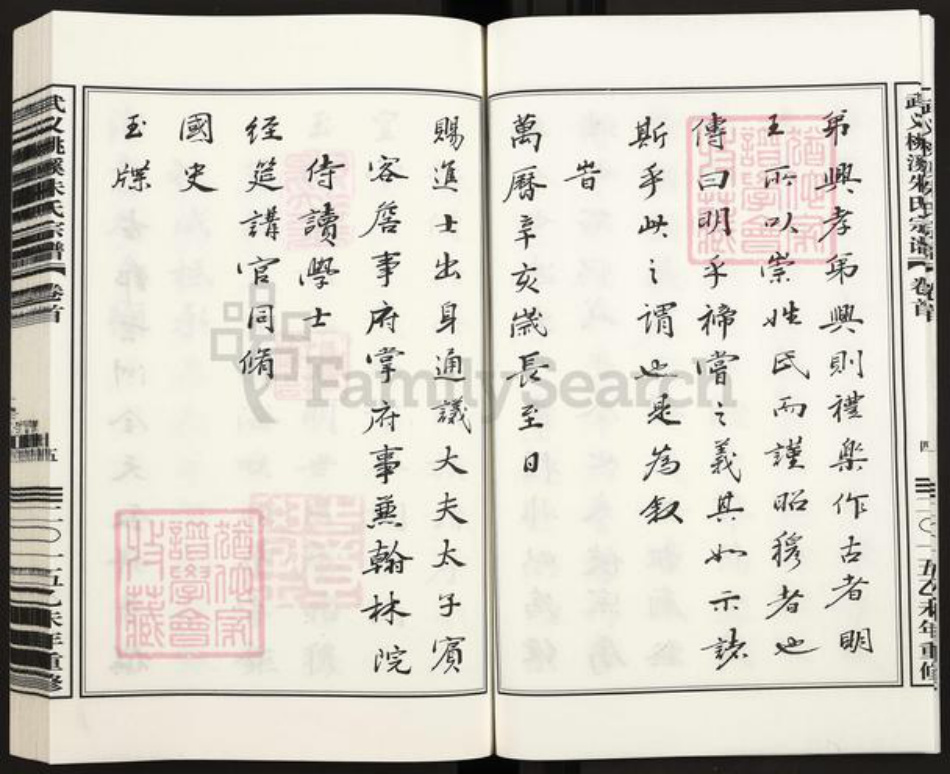 武义桃溪朱氏宗谱【卷首
四
二〇一五乙未年重修
弟興孝弟興則禮樂作古者明
王所以崇姓氏而謹昭穆者也
傳曰明乎禘嘗之義其如示諸
斯乎此之謂也是為叙
旹
萬曆辛亥歲長至日
賜進士出身通議大夫太子賓
客詹事府掌府事兼翰林院
侍讀學士
經筵講官同脩
國史
玉牒
武义桃溪朱氏宗谱【卷首
五
二〇一五乙未年重修
譜學會
收藏
譜學會
收藏
FamilySearch